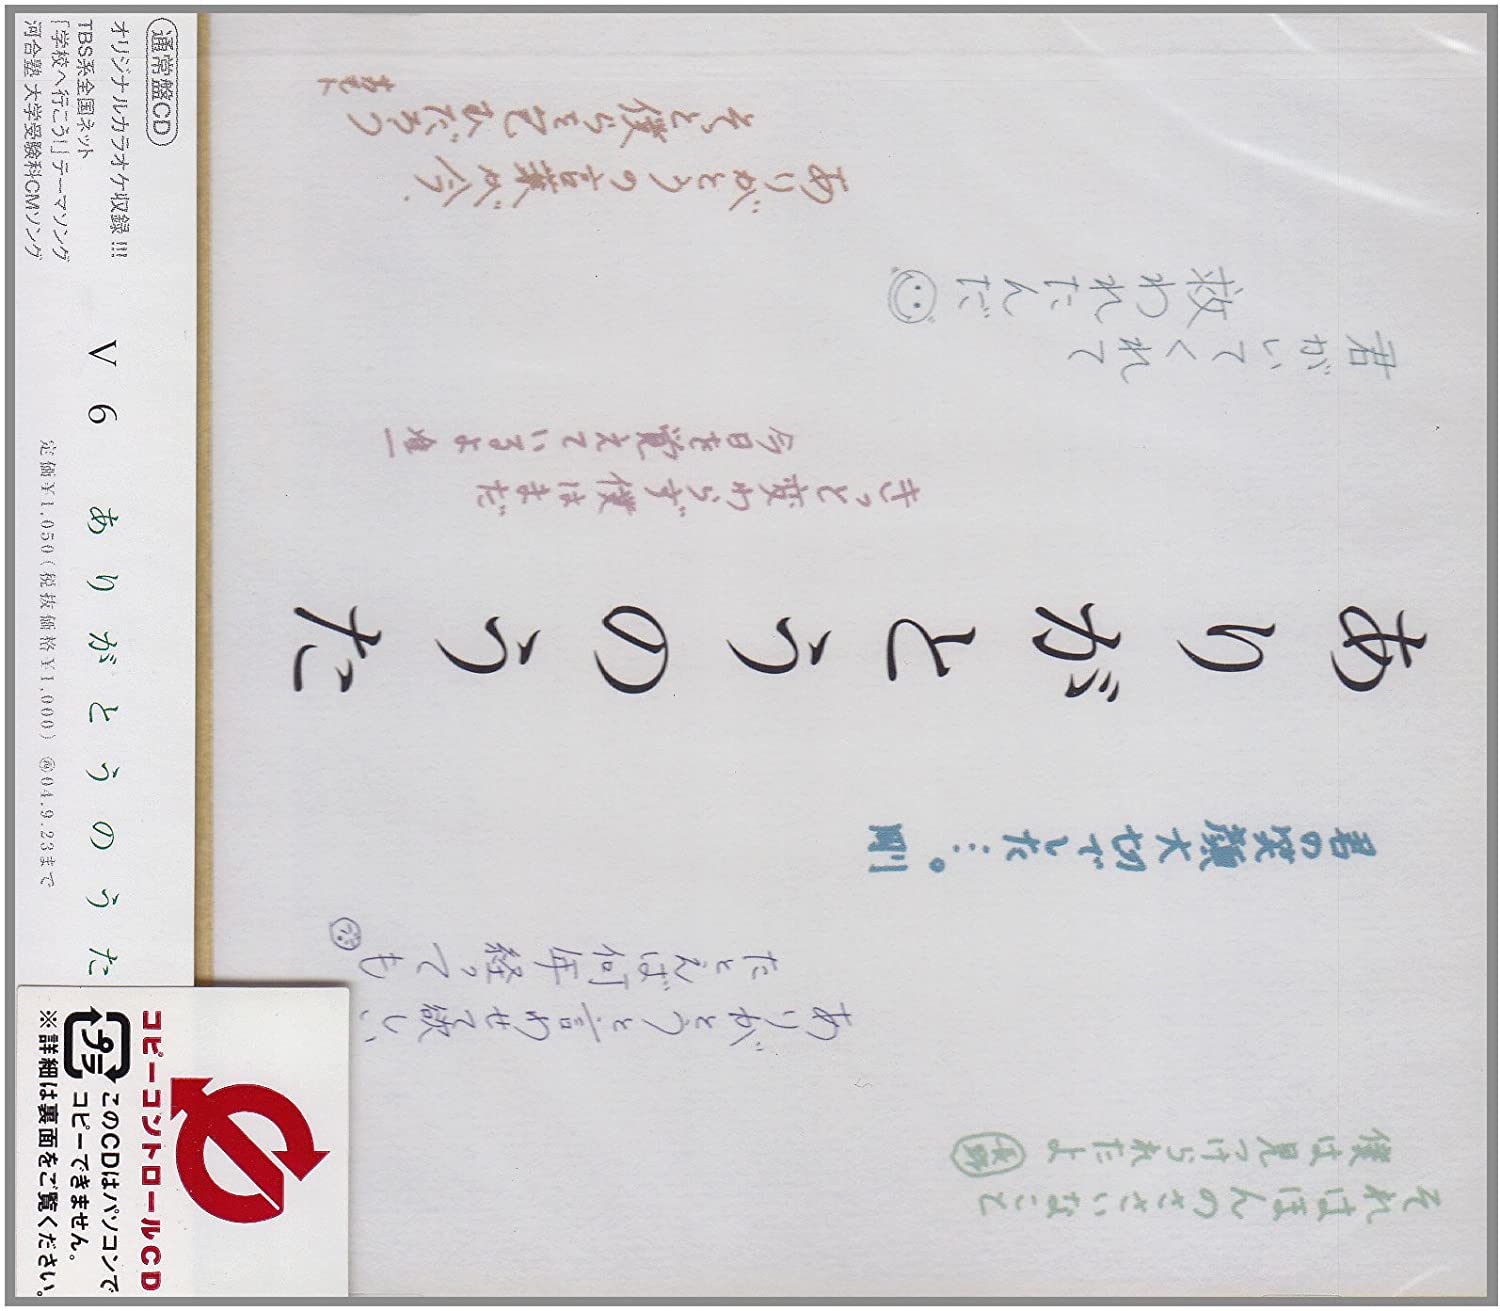 通常盤CD
オリジナルカラオケ収録!!!
TBS系全国ネット
「学校へ行こう!」テーマソング
河合塾 大学受験科CMソング
V6 ありがとうのうた
定価¥1,050(税抜価格¥1,000) 04.9.23まで
コピーコントロールCD
このCDはパソコンで
コピーできません。
※詳細は裏面をご覧ください。
ありがとうの言葉が今、
そっと僕らを包むだろう
君がいてくれて
救われたんだ
きっと変わらず僕はまだ
今日を覚えているよ
ありがとうのうた
君の笑顔大切でした…。剛
ありがとうと言わせて欲しい、
たとえば何年経っても
それはほんのささいなこと
僕は見つけられたよ 長野